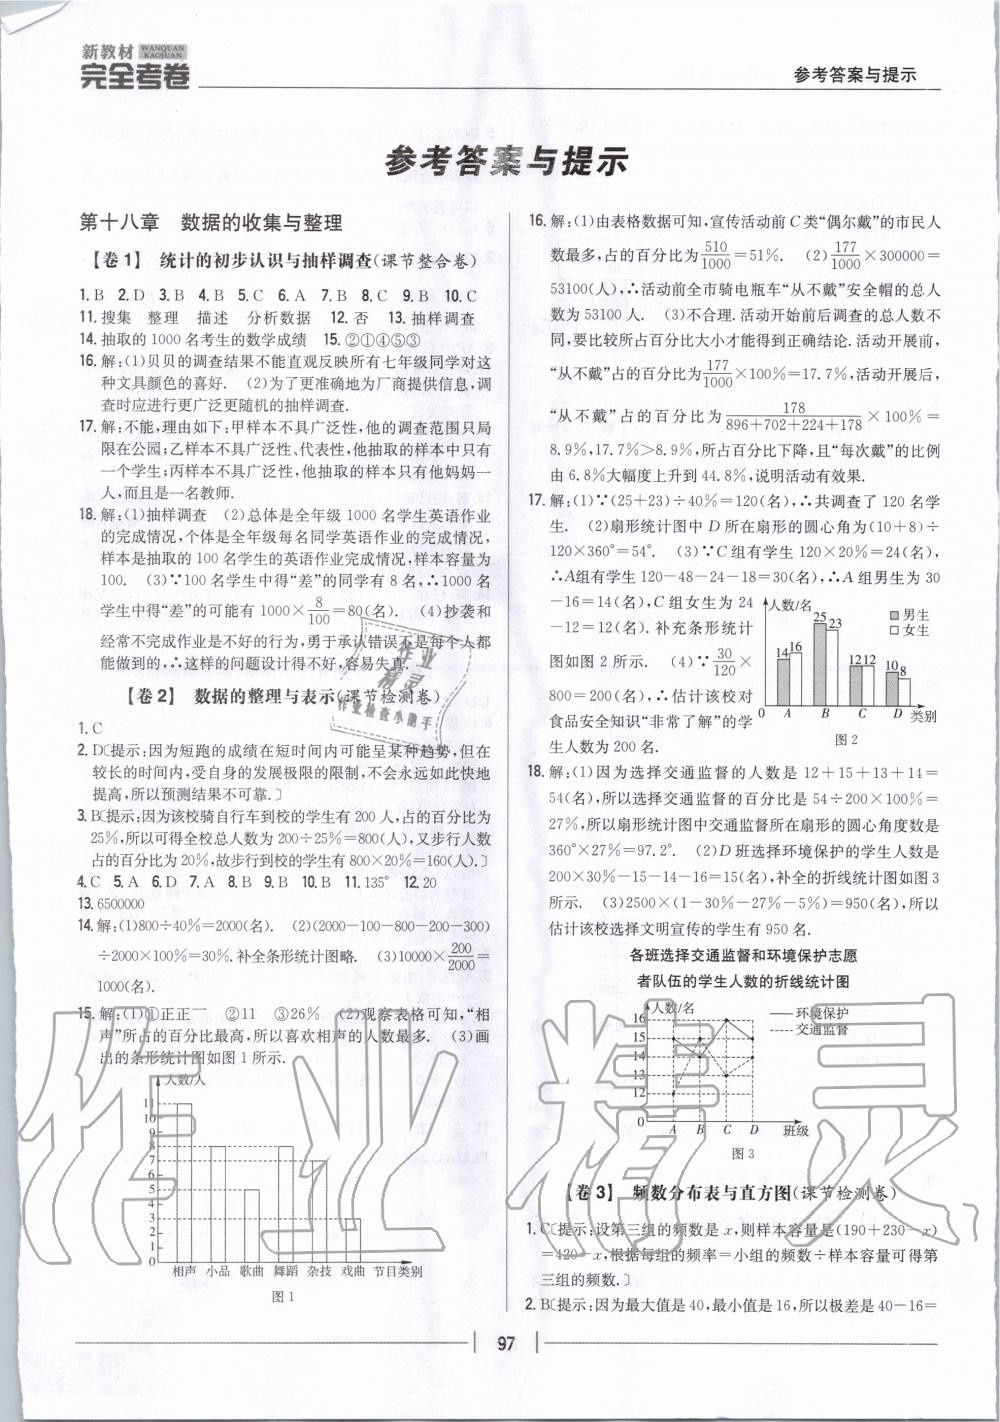 新教材 WANQUAN KAOJUAN
完全考卷
参考答案与提示
参考答案与提示
第十八章 数据的收集与整理
【卷1】 统计的初步认识与抽样调查(课节整合卷)
1. B 2. D 3. B 4. B 5. C 6. A 7. B 8. C 9. B 10. C
11. 搜集 整理 描述 分析数据 12. 否 13. 抽样调查
14. 抽取的1000名考生的数学成绩 15. ②①④⑤③
16. 解:(1)贝贝的调查结果不能直观反映所有七年级同学对这
种文具颜色的喜好. (2)为了更准确地为厂商提供信息,调
查时应进行更广泛更随机的抽样调查.
17. 解:不能,理由如下:甲样本不具广泛性,他的调查范围只局
限在公园;乙样本不具广泛性、代表性,他抽取的样本中只有
一个学生;丙样本不具广泛性,他抽取的样本只有他妈妈一
人,而且是一名教师.
18. 解:(1)抽样调查 (2)总体是全年级1000名学生英语作业
的完成情况,个体是全年级每名同学英语作业的完成情况,
样本是抽取的100名学生的英语作业完成情况,样本容量为
100. (3)∵100名学生中得“差”的同学有8名,∴1000名
学生中得“差”的可能有1000×8/100=80(名). (4)抄袭和
经常不完成作业是不好的行为,勇于承认错误不是每个人都
能做到的,∴这样的问题设计得不好,容易失真.
【卷2】 数据的整理与表示(课节检测卷)
1. C
2. D〔提示:因为短跑的成绩在短时间内可能呈某种趋势,但在
较长的时间内,受自身的发展极限的限制,不会永远如此快地
提高,所以预测结果不可靠.〕
3. B〔提示:因为该校骑自行车到校的学生有200人,占的百分比为
25%,所以可得全校总人数为200÷25%=800(人),又步行人数
占的百分比为20%,故步行到校的学生有800×20%=160(人).〕
4. C 5. A 6. D 7. A 8. B 9. B 10. B 11. 135° 12. 20
13. 6500000
14. 解:(1)800÷40%=2000(名). (2)(2000-100-800-200-300)
÷2000×100%=30%. 补全条形统计图略. (3)10000×200/2000=
1000(名).
15. 解:(1)①正正一 ②11 ③26% (2)观察表格可知,“相
声”所占的百分比最高,所以喜欢相声的人数最多. (3)画
出的条形统计图如图1所示.
人数/人
11
10
9
8
7
6
5
4
3
2
1
0
相声 小品 歌曲 舞蹈 杂技 戏曲 节目类别
图1
16. 解:(1)由表格数据可知,宣传活动前C类“偶尔戴”的市民人
数最多,占的百分比为510/1000=51%. (2)177/1000×300000=
53100(人),∴活动前全市骑电瓶车“从不戴”安全帽的总人
数为53100人. (3)不合理. 活动开始前后调查的总人数不
同,要比较所占百分比大小才能得到正确结论. 活动开展前,
“从不戴”占的百分比为177/1000×100%=17.7%,活动开展后,
“从不戴”占的百分比为178/(896+702+224+178)×100%=
8.9%,17.7%>8.9%,所占百分比下降,且“每次戴”的比例
由6.8%大幅度上升到44.8%,说明活动有效果.
17. 解:(1)∵(25+23)÷40%=120(名),∴共调查了120名学
生. (2)扇形统计图中D所在扇形的圆心角为(10+8)÷
120×360°=54°. (3)∵C组有学生120×20%=24(名),
∴A组有学生120-48-24-18=30(名),∴A组男生为30
-16=14(名),C组女生为24
-12=12(名). 补充条形统计
图如图2所示. (4)∵30/120×
800=200(名),∴估计该校对
食品安全知识“非常了解”的学
生人数为200名.
人数/名
男生
女生
14 16 25 23 12 12 10 8
0 A B C D 类别
图2
18. 解:(1)因为选择交通监督的人数是12+15+13+14=
54(名),所以选择交通监督的百分比是54÷200×100%=
27%,所以扇形统计图中交通监督所在扇形的圆心角度数是
360°×27%=97.2°. (2)D班选择环境保护的学生人数是
200×30%-15-14-16=15(名),补全的折线统计图如图3
所示. (3)2500×(1-30%-27%-5%)=950(名),所以
估计该校选择文明宣传的学生有950名.
各班选择交通监督和环境保护志愿
者队伍的学生人数的折线统计图
人数/名
环境保护
交通监督
16
15
14
13
12
0 A B C D 班级
图3
【卷3】 频数分布表与直方图(课节检测卷)
1. C〔提示:设第三组的频数是x,则样本容量是(190+230-x)
=420-x,根据每组的频率=小组的频数÷样本容量可得第
三组的频数.〕
2. B〔提示:因为最大值是40,最小值是16,所以极差是40-16=
97
作业精灵
作业检查小助手
作业精灵